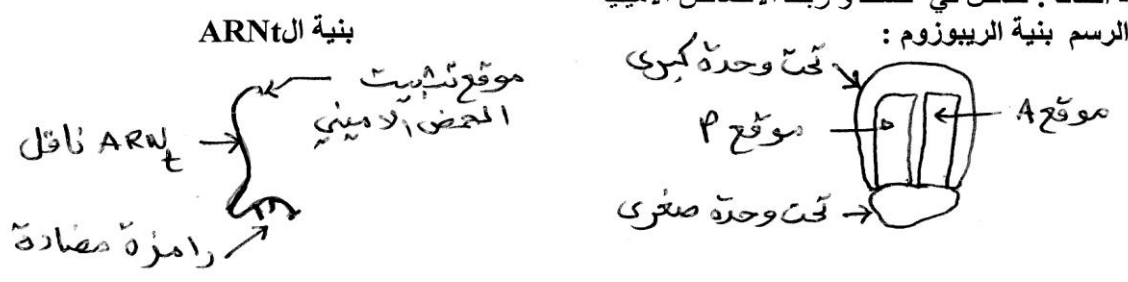 الرسم بنية الريبوزوم :
تحت وحدة كبرى
موقع A
موقع P
تحت وحدة صغرى
بنية الARNt
موقع تثبيت
الحمض الاميني
ARNt ناقل
رامزة مضادة